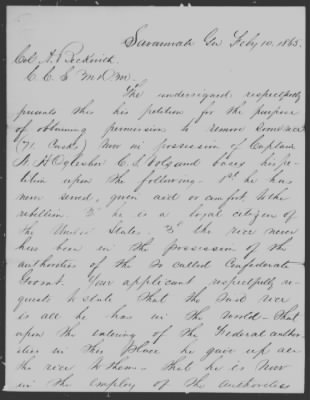 Savannah Ga Feby 10, 1865.
Col. A.
C. C. S M. D. M.
The undersigned respectfully
presents this his petition for the purpose
of obtaining permission to remove some rice
(71. Casks) now in possession of Captain
H. C. S. Vols and bases his pe-
tition upon the following - 1st he has
never served, given aid or comfort to the
rebellion. 2d he is a loyal citizen of
the United States. 3d the rice never
has been in the possession of the
authorities of the so called Confederate
Govmt. Your applicant respectfully re-
quests to state that the said rice
is all he has in the world - that
upon the entering of the Federal autho-
rities in this place he gave up all
the rice to them - that he is now
in the employ of the authorities